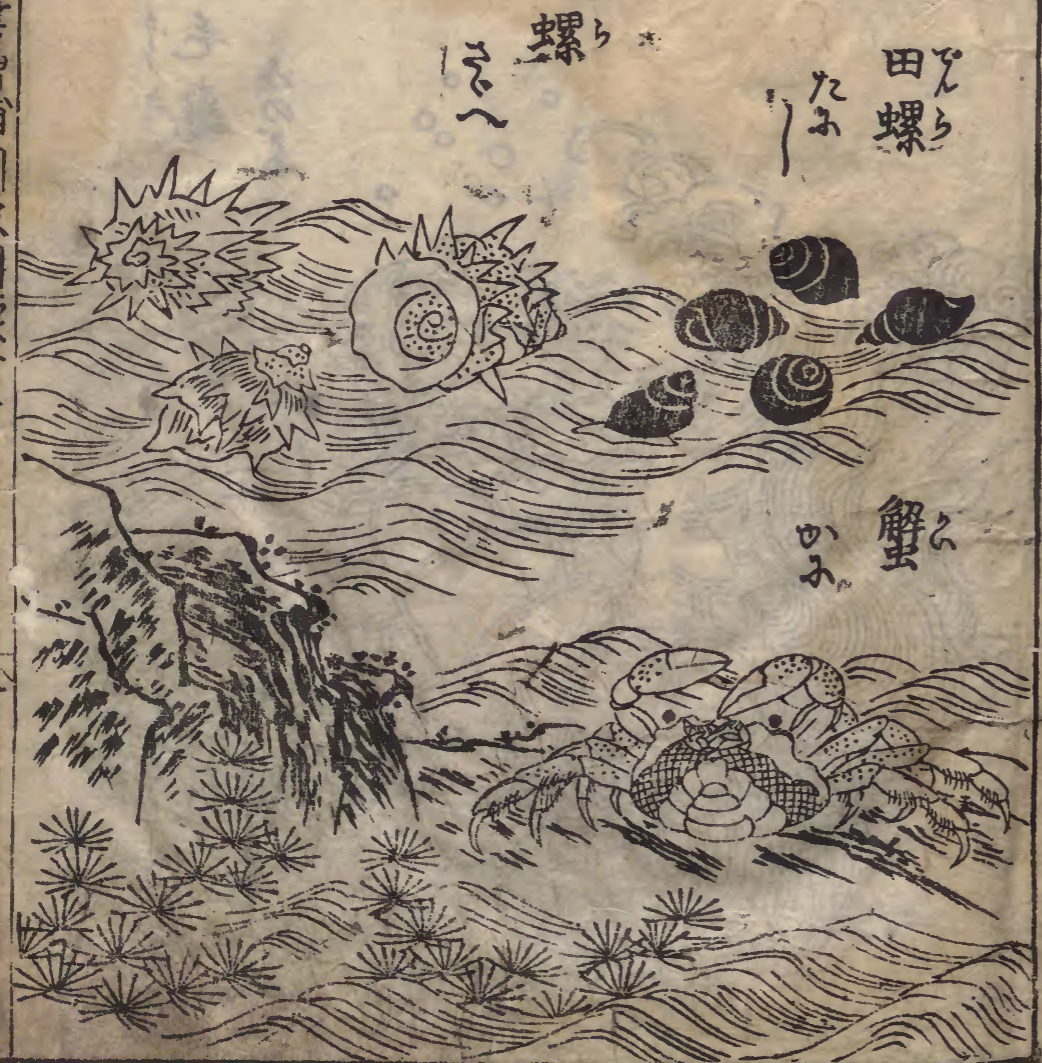 田螺
でんら
たにし
螺
ら
さゞへ
蟹
かい
かに